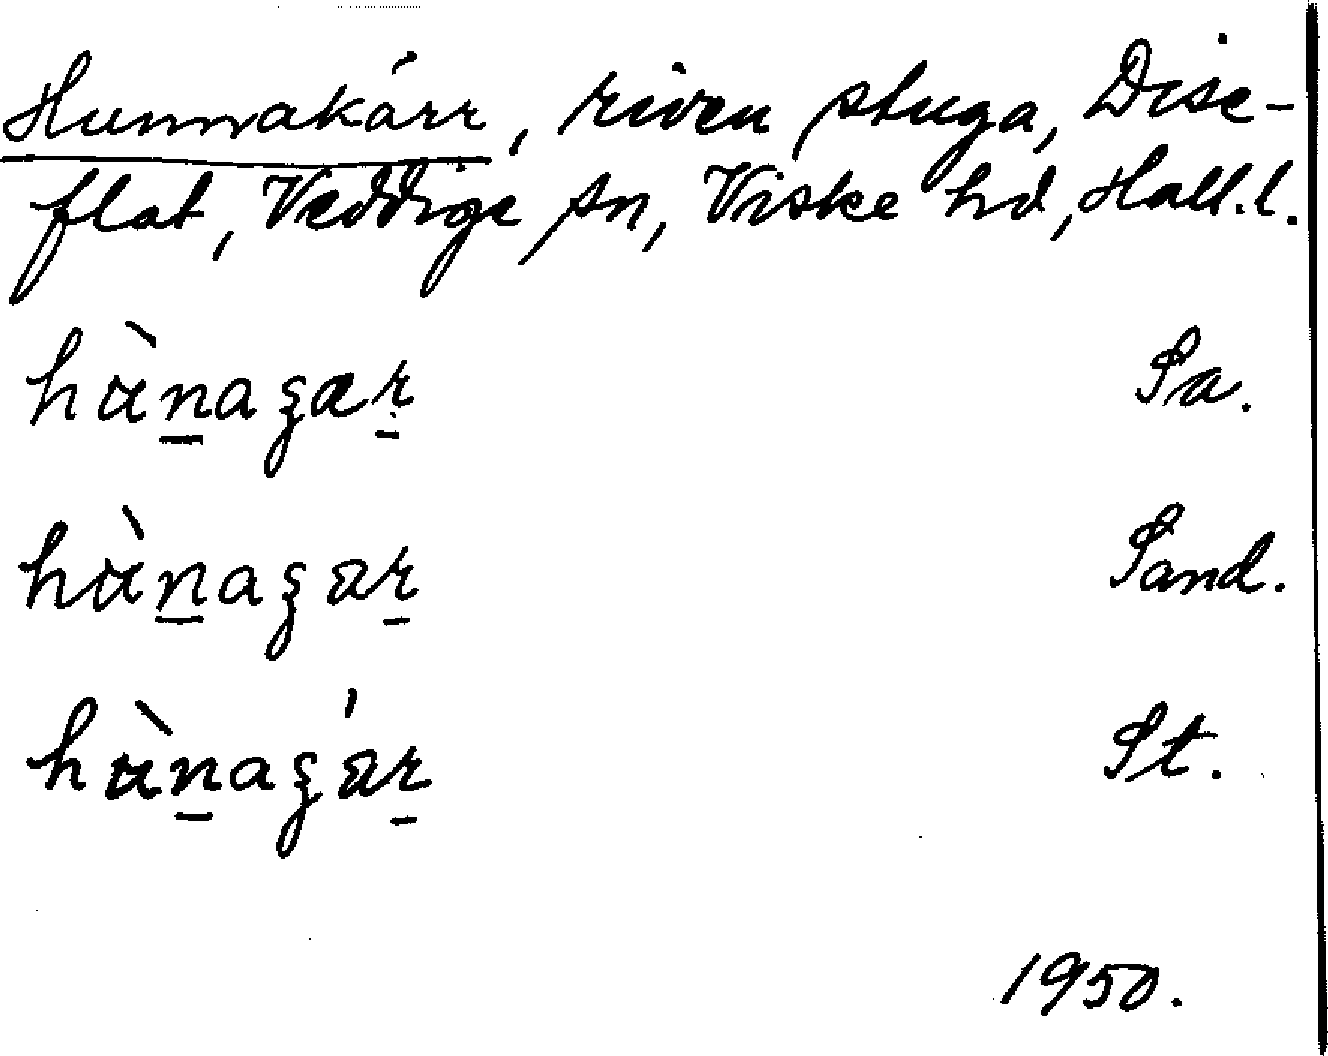 Hunnakärr, riven stuga, Dise-
flat, Veddige sn, Viske hd, Hall.l.
hùn̲aʓær̲ Sa.
hùn̲aʓar̲ Sand.
hùn̲aʓár̲ St.
1950.